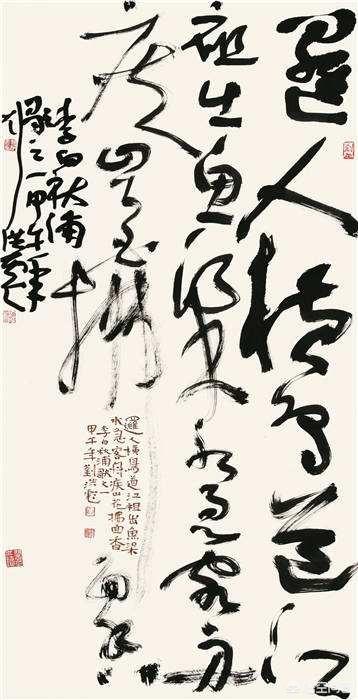 邏人橫鳥道江
祖出魚梁水急客舟
疾山花拂
面香
李白秋浦
歌之一甲午年洪彪
邏人橫鳥道江祖出魚梁
水急客舟疾山花拂面香
李白秋浦歌之一
甲午年劉洪彪